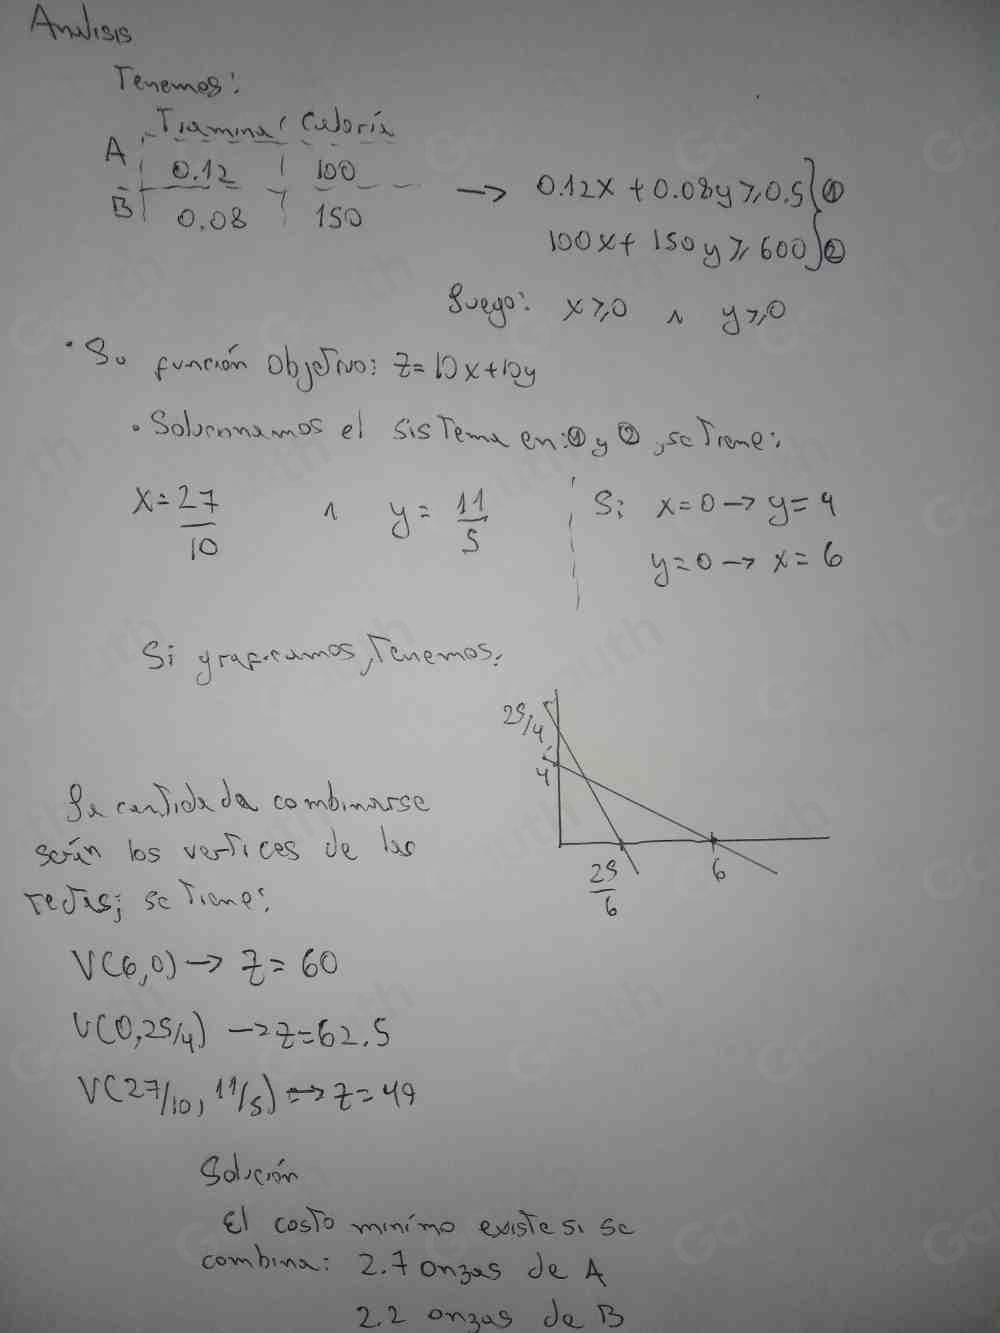 Análisis
Tenemos:
Tiamina Caloría
A 0.12 100
B 0.08 150
→ 0.12x + 0.08y ≥ 0.5 } ①
100x + 150y ≥ 600 } ②
Luego: x ≥ 0 ∧ y ≥ 0
• Su función Objetivo: Z = 10x + 10y
• Solucionamos el sistema en: ① y ②, se Tiene:
x = 27/10 ∧ y = 11/5
Si x = 0 → y = 4
y = 0 → x = 6
Si graficamos, Tenemos:
25/4
4
25/6
6
La cantidad a combinarse
serán los vertices de las
rectas; se Tiene:
V(6,0) → Z = 60
V(0,25/4) → Z = 62.5
V(27/10, 11/5) → Z = 49
Solución
El costo mínimo existe si se
combina: 2.7 onzas de A
2.2 onzas de B